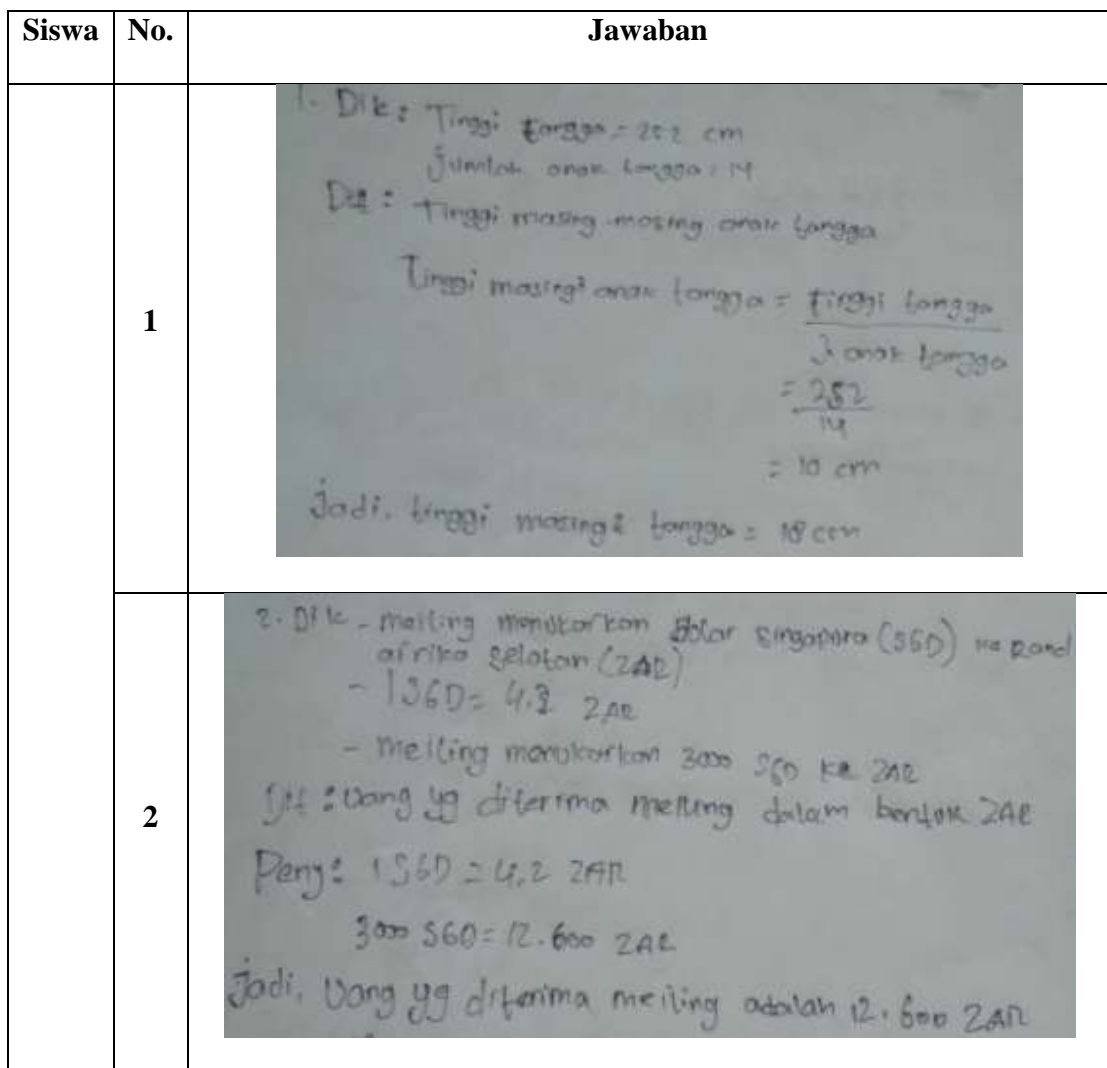 Siswa No. Jawaban
1
1. Dik : Tinggi tangga = 252 cm
Jumlah anak tangga = 14
Dit : Tinggi masing-masing anak tangga
Tinggi masing² anak tangga = tinggi tangga
J anak tangga
= 252
14
= 18 cm
Jadi, tinggi masing² tangga = 18 cm
2
2. Dik - meiling menukarkan dolar singapora (SGD) ke Rand
afrika selatan (ZAR)
- 1 SGD = 4.2 ZAR
- meiling menukarkan 3000 SGD ke ZAR
Dit : Uang yg diterima meiling dalam bentuk ZAR
Peny : 1 SGD = 4,2 ZAR
3000 SGD = 12.600 ZAR
Jadi, Uang yg diterima meiling adalah 12.600 ZAR